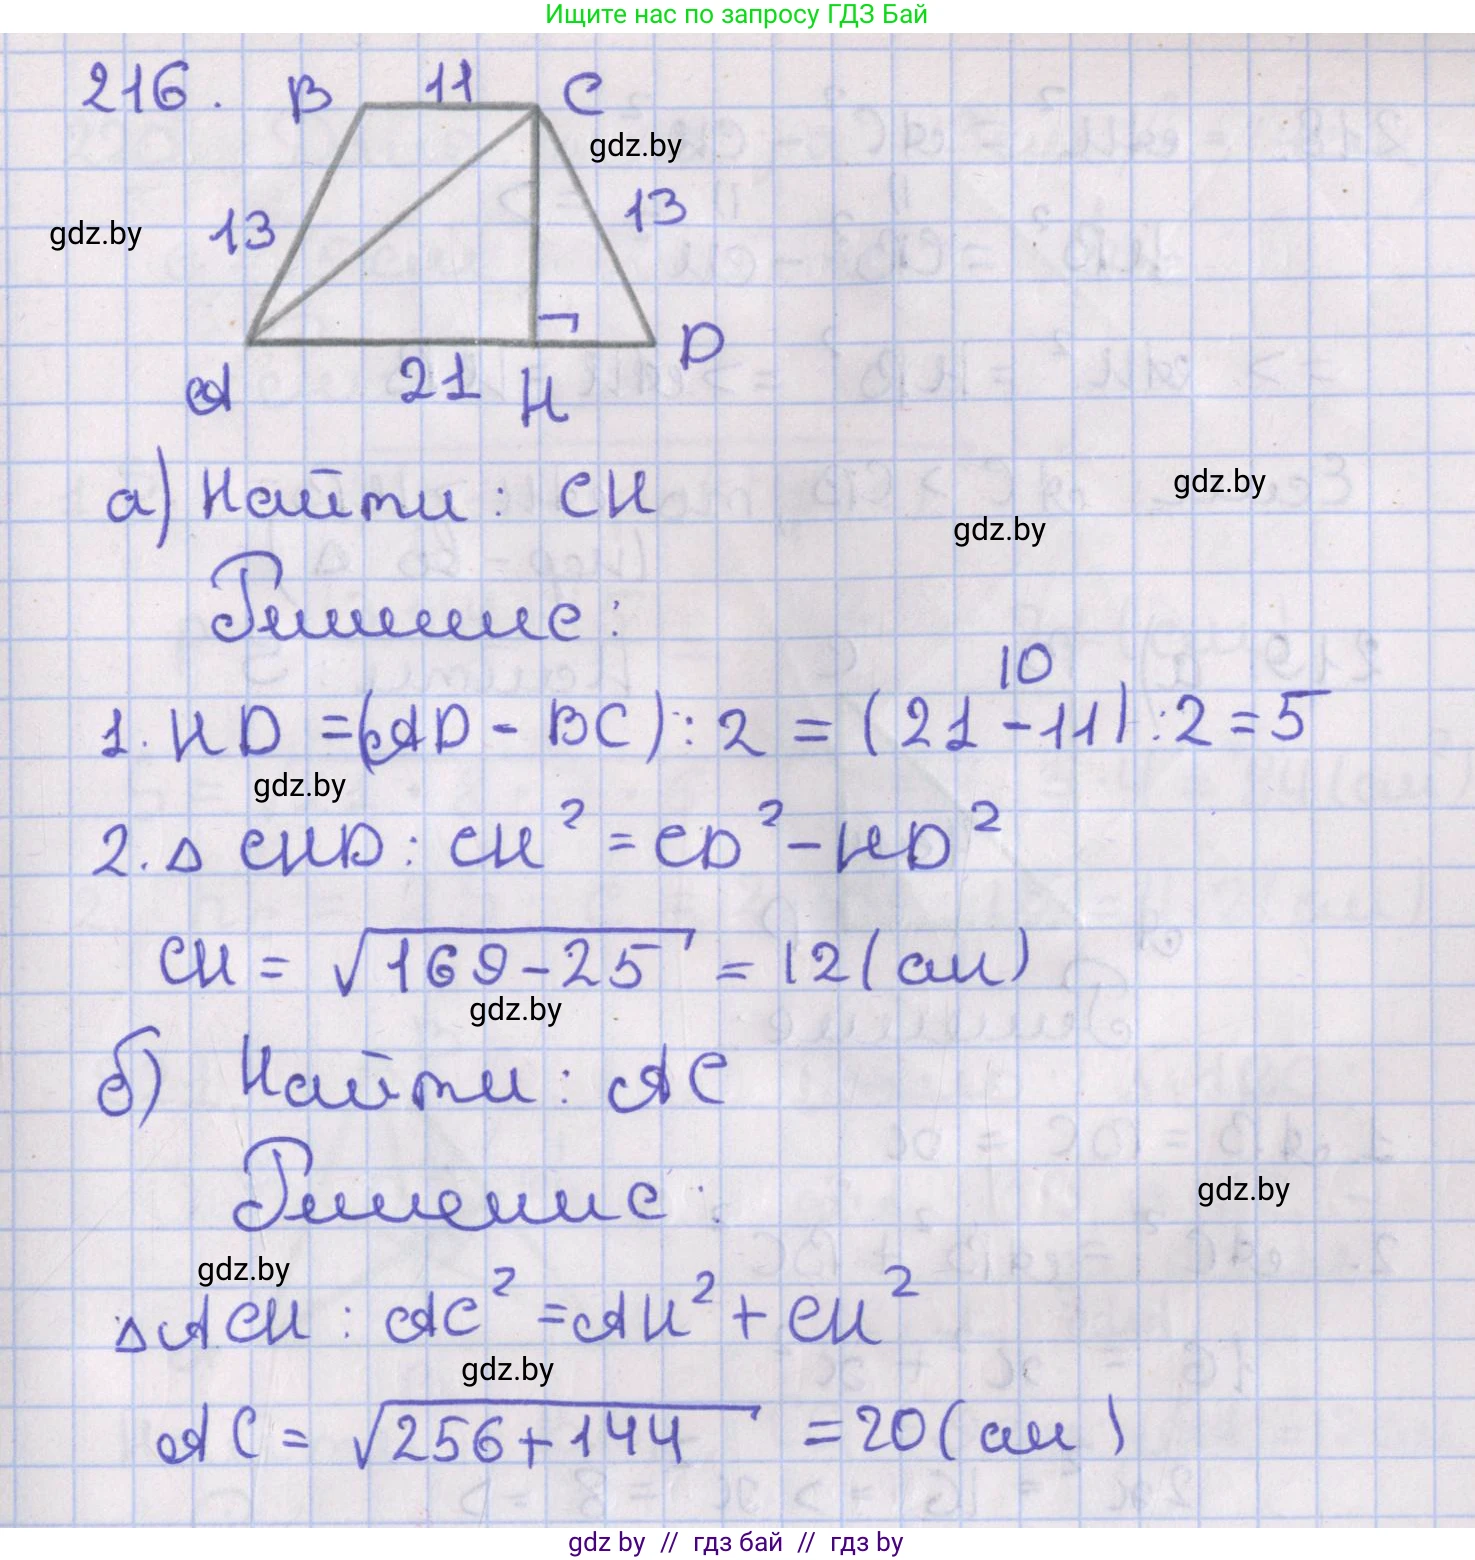 Ищите нас по запросу ГДЗ Бай
216. B 11 C
gdz.by
13 13
gdz.by
D
A 21 H
а) Найти: CH
gdz.by
gdz.by
Решение:
10
1. HD = (AD - BC) : 2 = (21 - 11) : 2 = 5
gdz.by
2. △ CHD : CH² = CD² - HD²
CH = √169-25 = 12 (см)
gdz.by
б) Найти: AC
Решение:
gdz.by
gdz.by
△ACH : AC² = AH² + CH²
gdz.by
AC = √256+144 = 20 (см)
gdz by // гдз бай // гдз by